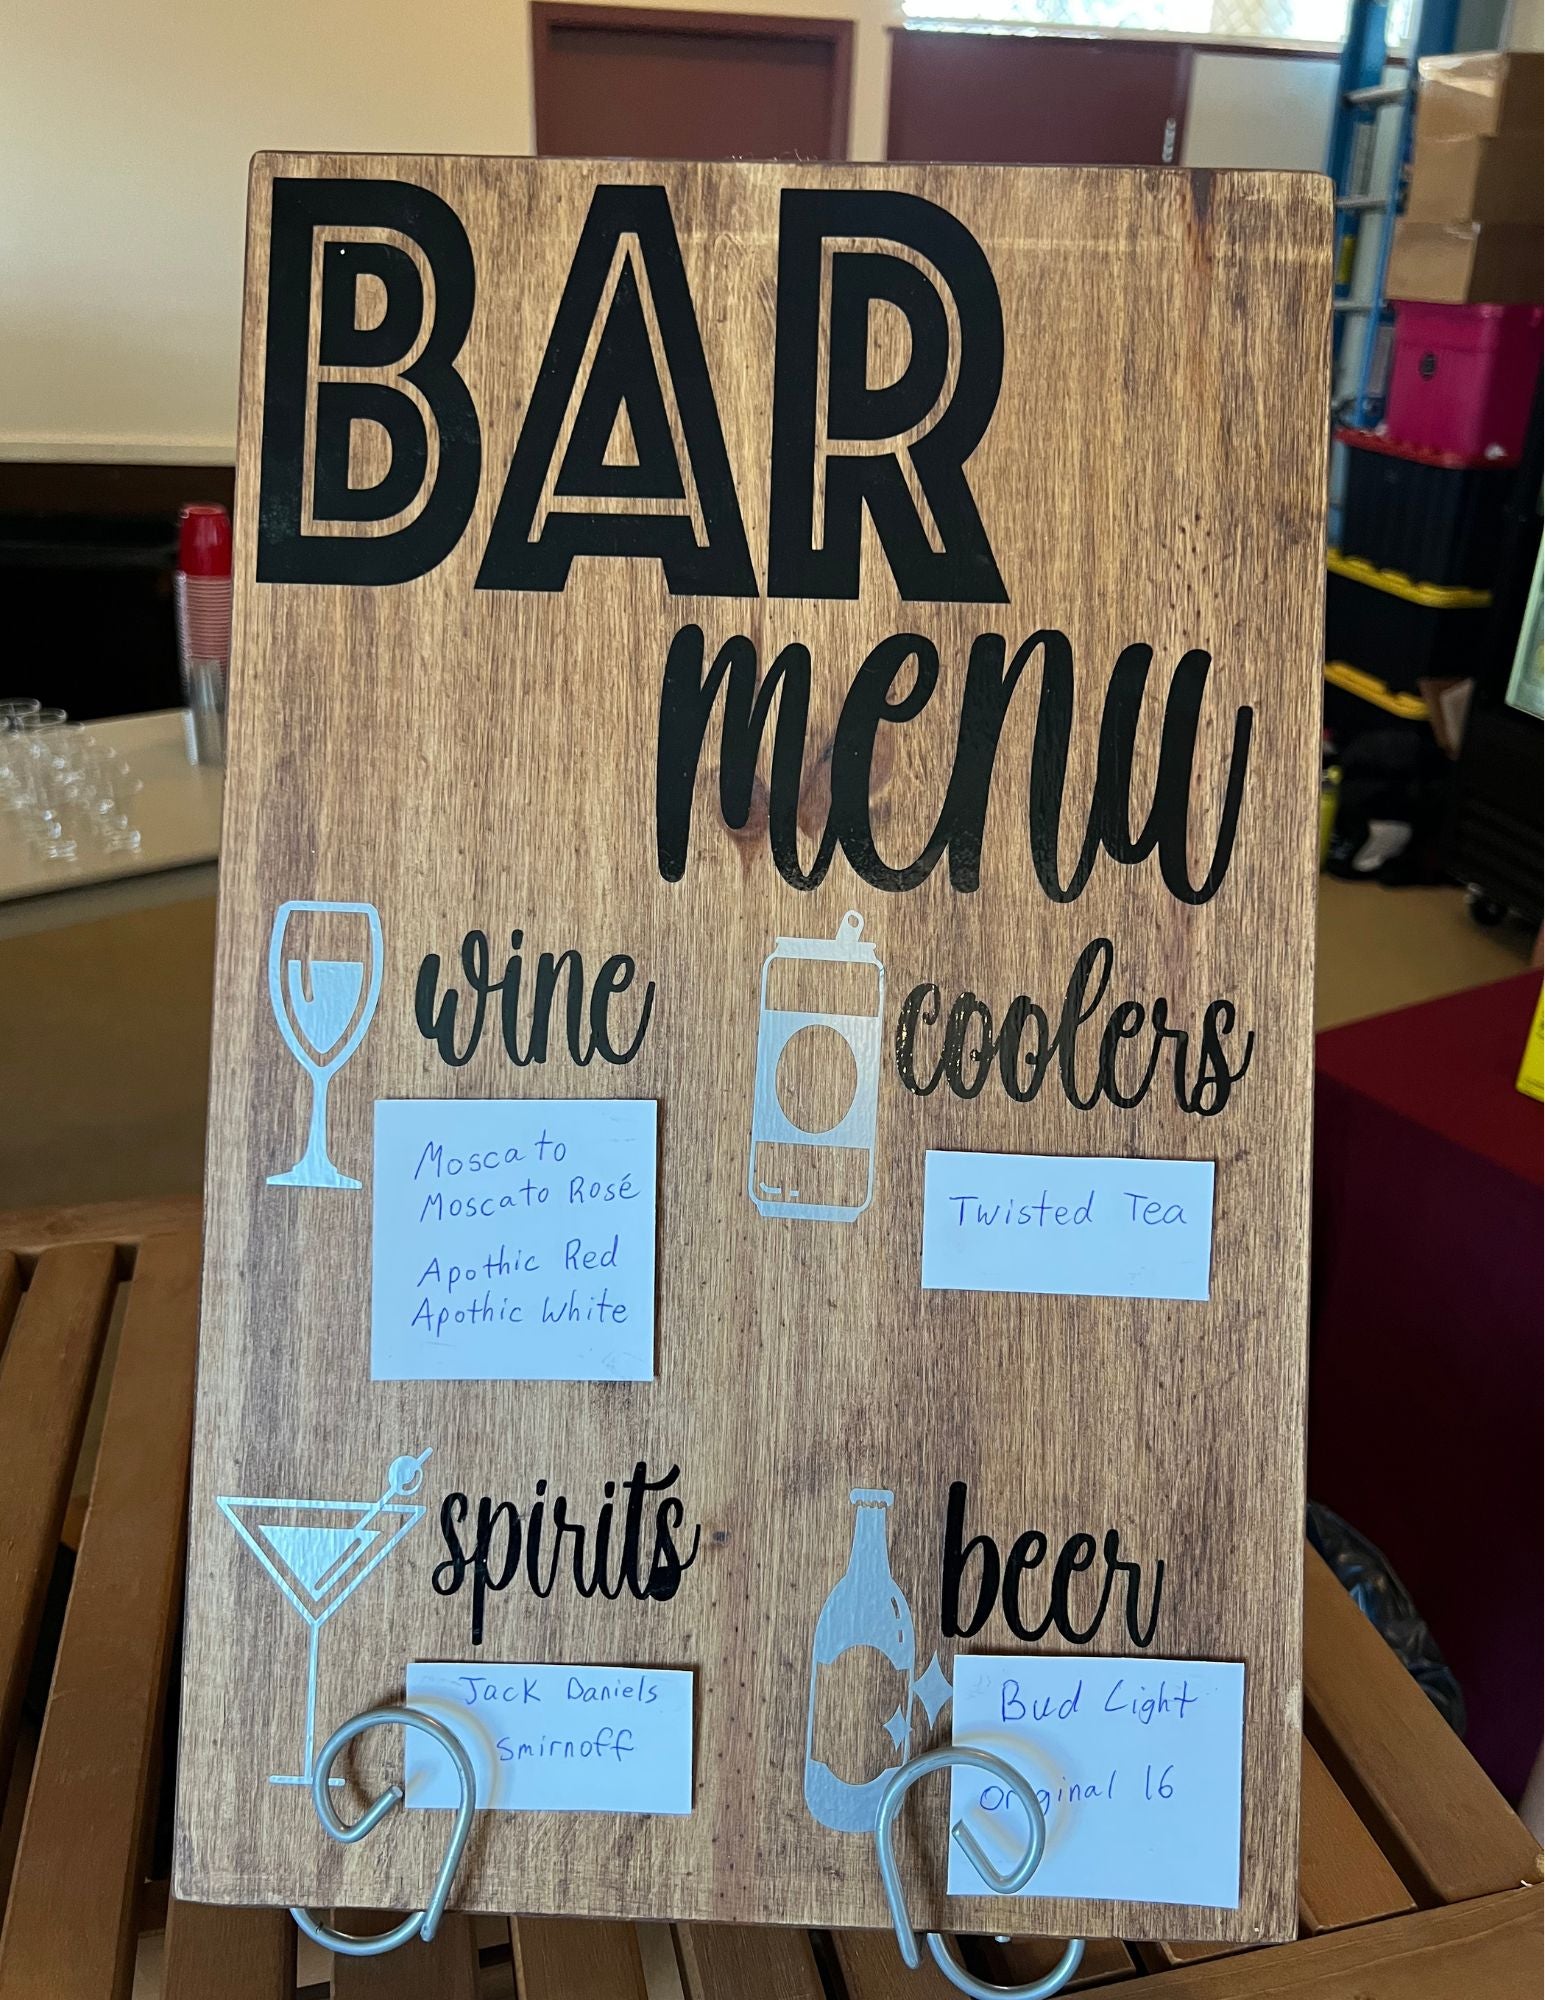 BAR
menu
wine
Moscato
Moscato Rosé
Apothic Red
Apothic White
coolers
Twisted Tea
spirits
Jack Daniels
Smirnoff
beer
Bud Light
Original 16